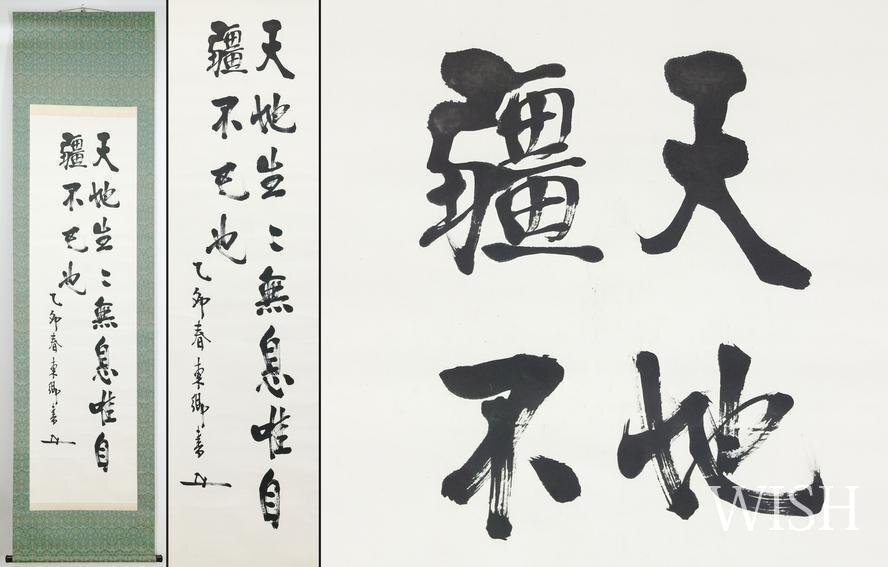 天地生〻無息唯自
疆不已也
乙卯春東郷書
天地生〻無息唯自
疆不已也
乙卯春東郷書
天地
疆不
WISH